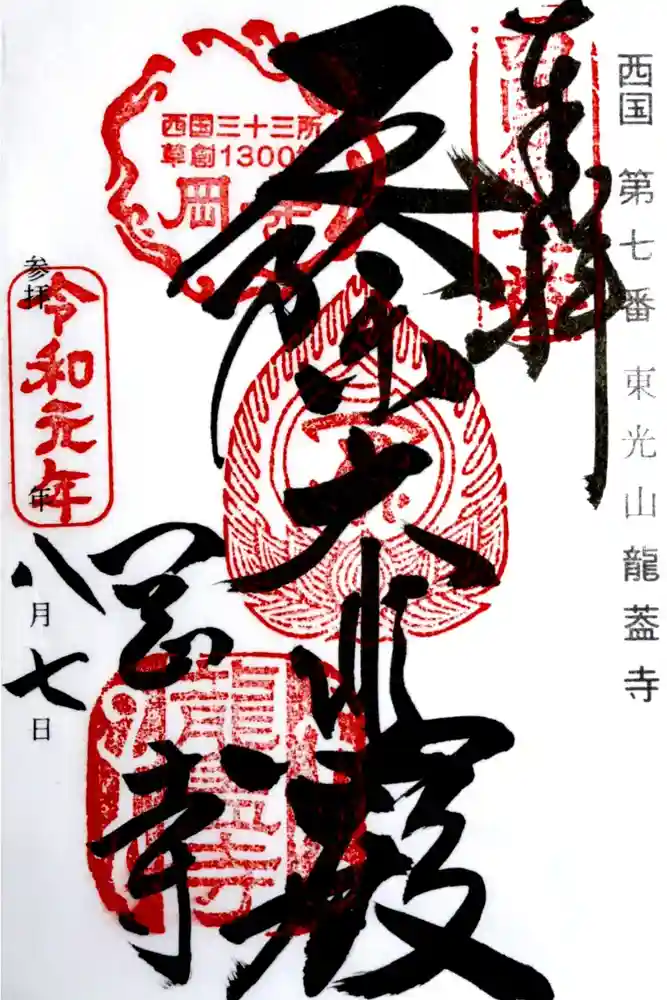 西国 第七番 東光山 龍蓋寺
奉拝
西国三十三所
草創1300年
岡寺
厄除大悲殿
龍蓋寺
岡寺
参拝 令和元年
年 八月七日